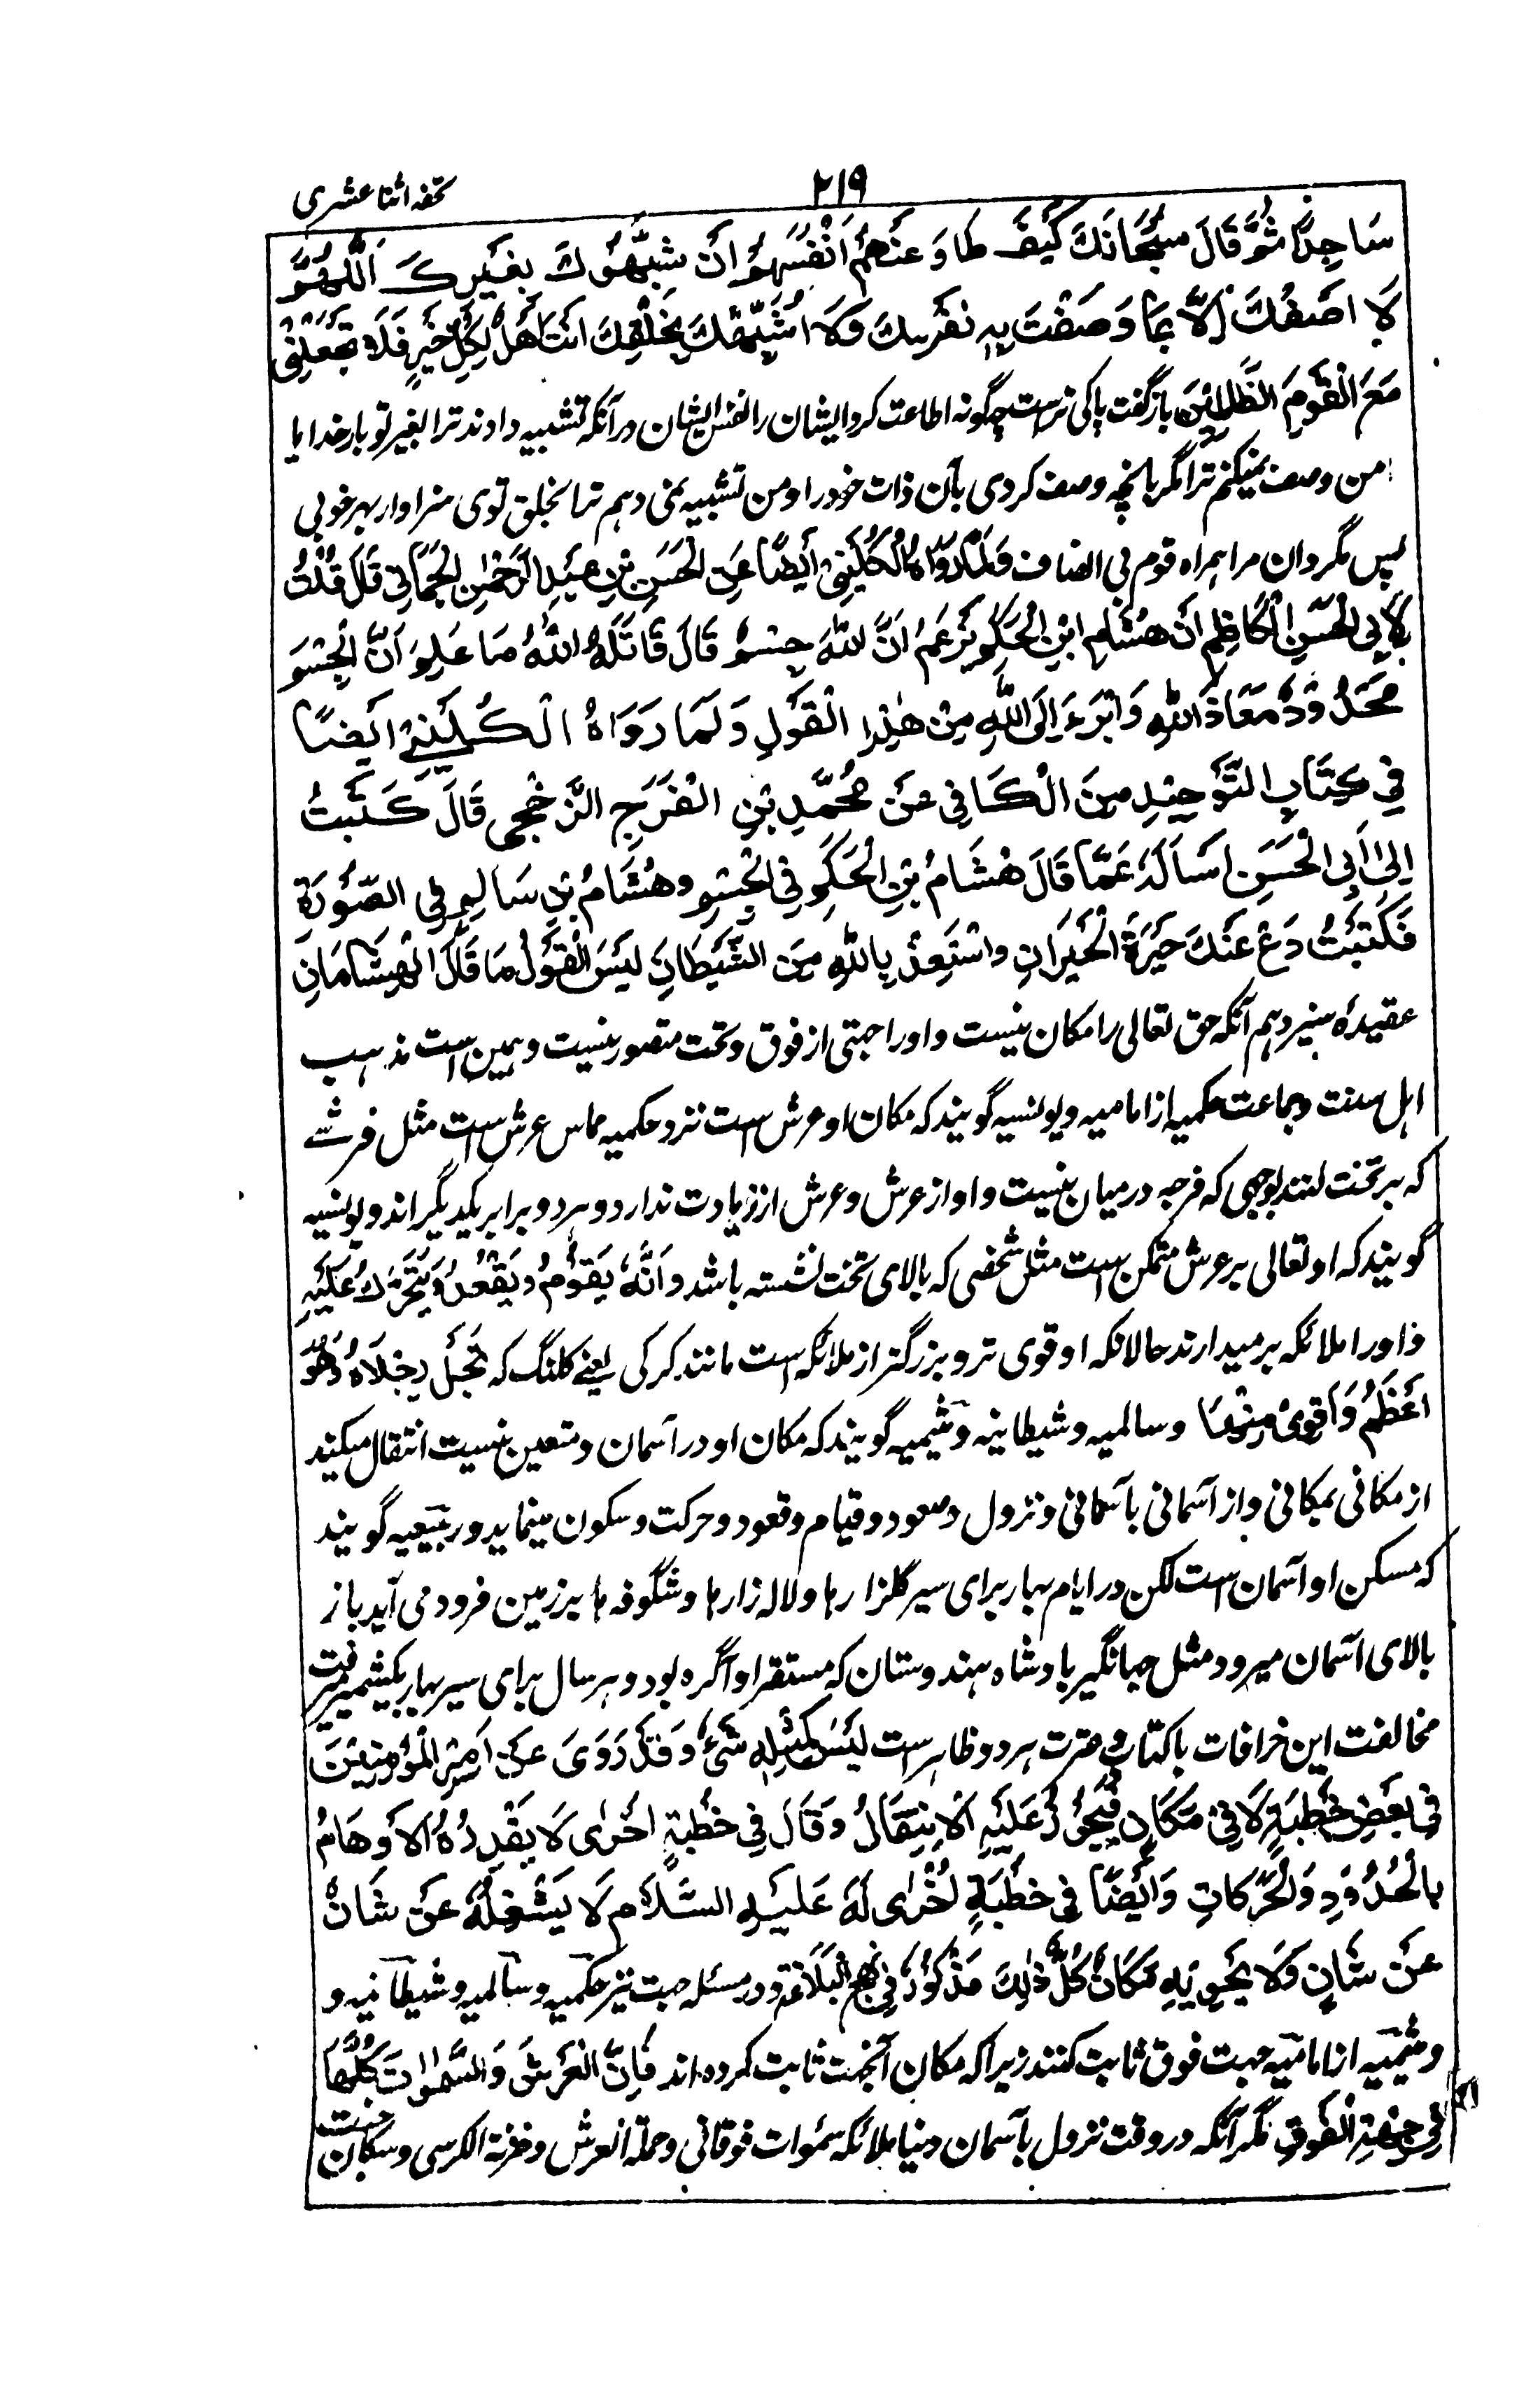 تحفه اثنا عشری
۲۱۹
سَاجِدًا ثُمَّ قَالَ سُبْحَانَكَ كَيْفَ طَاوَعَتْهُمْ اَنْفُسُهُمْ اَنْ شَبَّهُوْكَ بِغَيْرِكَ اَللّٰهُمَّ
لَا اَصِفُكَ اِلَّا بِمَا وَصَفْتَ بِهٖ نَفْسَكَ وَلَا اُشَبِّهُكَ بِخَلْقِكَ اَنْتَ اَهْلٌ لِكُلِّ خَيْرٍ فَلَا تَجْعَلْنِیْ
مَعَ الْقَوْمِ الظّٰلِمِيْنَ باز گفت پاکی تراست چگونه اطاعت کرد ایشان را نفس ایشان در آنکه تشبیه دادند ترا بغیر تو بار خدایا
من وصف نمیکنم ترا مگر بانچه وصف کردی بآن ذات خود را و من تشبیه نمی دهم ترا بخلق توی سزاوار بهر خوبی
پس مگردان مرا همراه قوم بی انصاف وَلَمَا رَوَاهُ الْكُلَيْنِیْ اَيْضًا عَنِ الْحَسَنِ بْنِ عَبْدِ الرَّحْمٰنِ الْحِمَّانِیْ قَالَ قُلْتُ
لِاَبِی الْحَسَنِ الْكَاظِمِ اَنَّ هِشَامَ ابْنَ الْحَكَمِ يَزْعَمُ اَنَّ اللّٰهَ جِسْمٌ قَالَ قَاتَلَهُ اللّٰهُ مَا عَلِمَ اَنَّ الْجِسْمَ
مَحْدُوْدٌ مَعَاذَ اللّٰهِ وَاَبْرَءُ اِلَی اللّٰهِ مِنْ هٰذَا الْقَوْلِ وَلَمَا رَوَاهُ الْكُلَيْنِیْ اَيْضًا
فِیْ كِتَابِ التَّوْحِيْدِ مِنَ الْكَافِی عَنْ مُحَمَّدِ بْنِ الْفَرَجِ الرُّخَّجِی قَالَ كَتَبْتُ
اِلٰی اَبِی الْحَسَنِ اَسْاَلُهٗ عَمَّا قَالَ هِشَامُ بْنِ الْحَكَمِ فِی الْجِسْمِ وَهِشَامُ بْنِ سَالِمٍ فِی الصُّوْرَةِ
فَكَتَبْتُ دَعْ عَنْكَ حَيْرَةَ الْحَيْرَانِ وَاسْتَعِذْ بِاللّٰهِ مِنَ الشَّيْطَانِ لَيْسَ الْقَوْلُ مَا قَالَ الْهِشَامَانِ
عقیدۀ سیزدهم آنکه حق تعالی را مکان نیست و او را جهتی از فوق و تحت متصور نیست و همین است مذهب
اهل سنت و جماعت حکمیه از امامیه و یونسیه گویند که مکان او عرش است نزد حکمیه مماس عرش است مثل فرشے
که بر تخت کنند بوجهی که فرجه درمیان نیست و او از عرش و عرش از و زیادت ندارد و هر دو برابر یکدیگر اند و یونسیه
گویند که او تعالی بر عرش متمکن است مثل شخصی که بالای تخت نشسته باشد و اَنَّهٗ يَقُوْمُ وَيَقْعُدُ وَيَتَحَرَّكُ عَلَيْهِ
و او را ملائکه بر میدارند حالانکه او قوی تر و بزرگتر از ملائکه است مانند کرکی یعنے کلنگ که تَحْمِلُ رِجْلَاهُ وَهُوَ
اَعْظَمُ وَاَقْوٰی مِنْهُمَا و سالمیه و شیطانیه و میثمیه گویند که مکان او در آسمان و متعین نیست انتقال میکند
از مکانی بمکانی و از آسمانی بآسمانی و نزول و صعود و قیام و قعود و حرکت و سکون مینماید و ربیعیه گویند
که مسکن او آسمان است لکن در ایام بهار برای سیر گلزارها و لاله زارها و شگوفه ها بر زمین فرود می آید باز
بالای آسمان میرود مثل جهانگیر بادشاه هندوستان که مستقر او آگره بود و هر سال برای سیر بهار بکشمیر میرفت
مخالفت این خرافات با کتاب و عترت هر دو ظاهر است لَيْسَ كَمِثْلِهٖ شَیْءٌ وَقَدْ رَوَی عَنْ اَمِيْرِ الْمُؤْمِنِيْنَ
فِیْ بَعْضِ خُطْبَةٍ لَا فِیْ مَكَانٍ فَيَجُوْزُ عَلَيْهِ الْاِنْتِقَالُ وَقَالَ فِیْ خُطْبَةٍ اُخْرٰی لَا يَقْدِرُهُ الْاَوْهَامُ
بِالْحُدُوْدِ وَالْحَرَكَاتِ وَاَيْضًا فِیْ خُطْبَةٍ اُخْرٰی لَهٗ عَلَيْهِ السَّلَامُ لَا يَشْغَلُهٗ عَنْ شَانٌ
عَنْ شَانٍ وَلَا يَحْوِيْهِ مَكَانٌ كُلُّ ذٰلِكَ مَذْكُوْرٌ فِیْ نَهْجِ الْبَلَاغَةِ و در مسئله جهت نیز حکمیه و سالمیه و شیطانیه و
و میثمیه از امامیه جهت فوق ثابت کنند زیرا که مکان آنجهت ثابت کرده اند فَاِنَّ الْعَرْشَ وَالسَّمٰوَاتِ كُلُّهَا
فِیْ جِهَةِ الْفَوْقِ مگر آنکه در وقت نزول بآسمان دنیا ملائکه سموات فوقانی و حملة العرش و خزنة الکرسی و سکان جنت